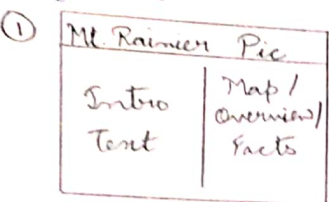 ①
Mt. Rainier Pic
Intro
Text
Map /
Overview/
Facts